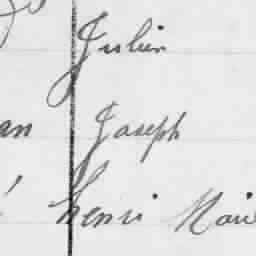 Julien
an Joseph
Henri Mari